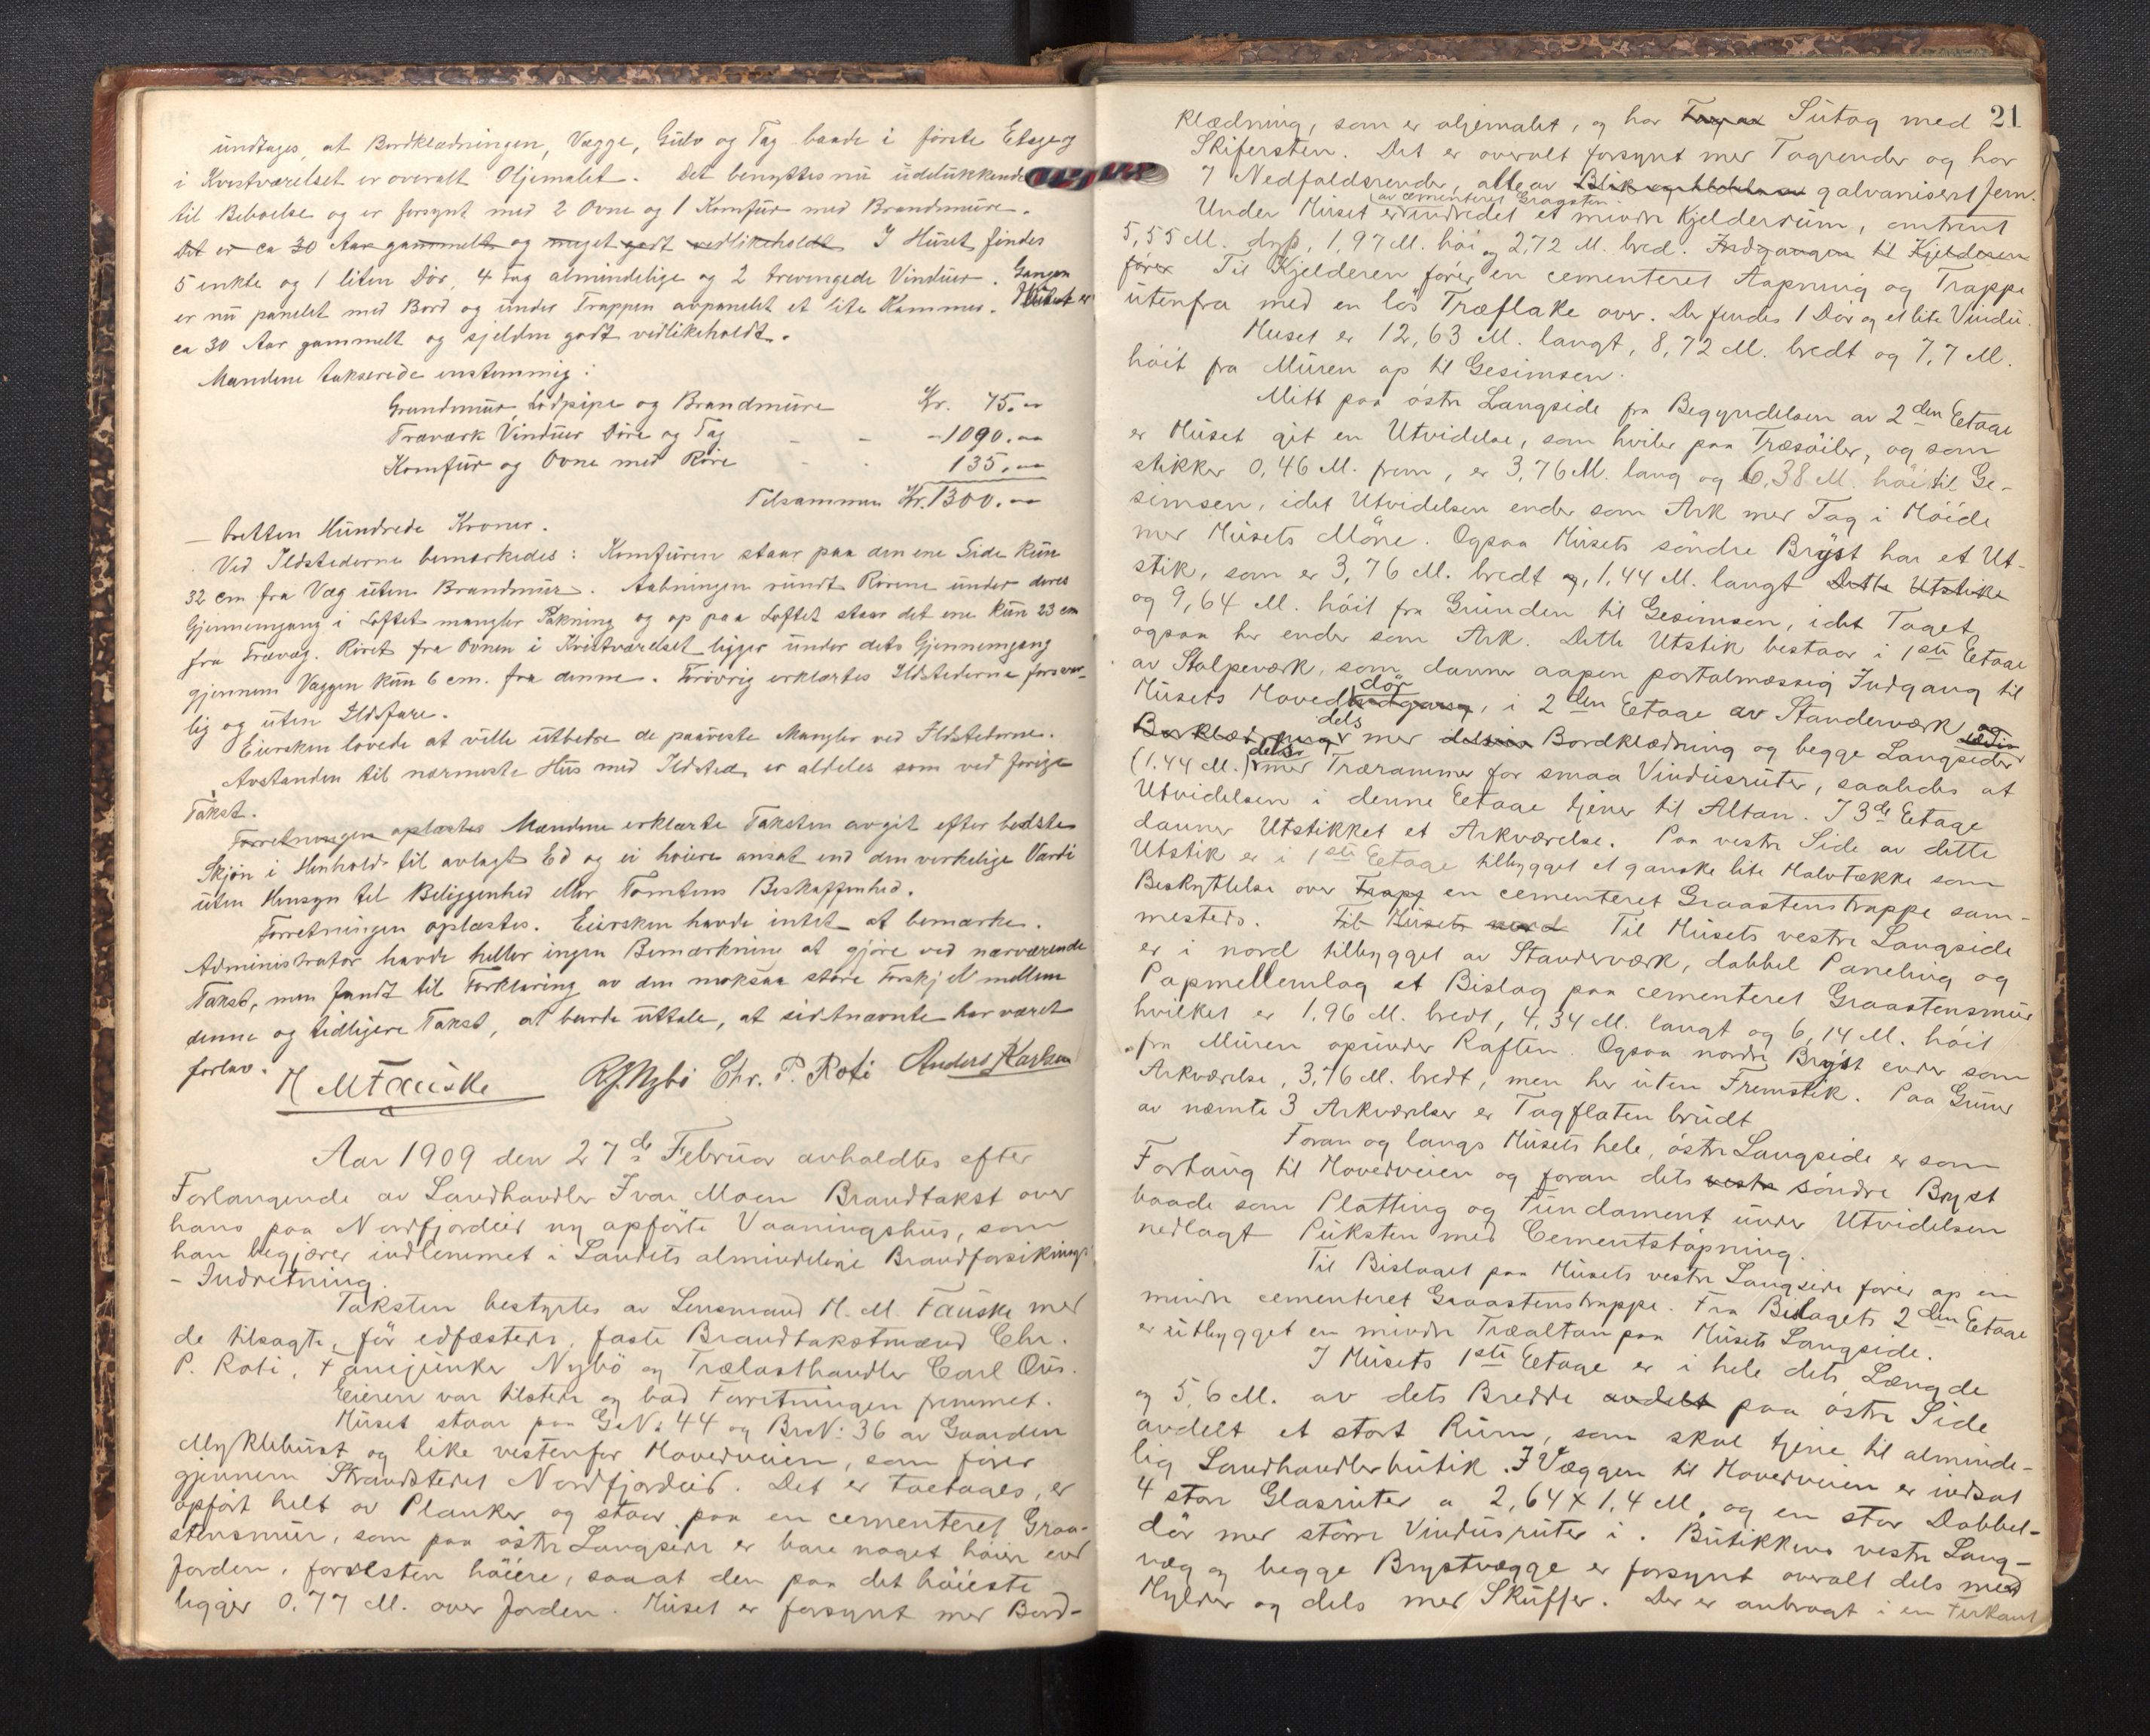 undtages, at Bordklædningen, Vægge, Gulv og Tag baade i første Etage og
i Kvistværelset er overalt Oljemalet. Det benyttes nu udelukkende
til Beboelse og er forsynt med 2 Ovne og 1 Komfur med Brandmure.
Det er ca 30 Aar gammelt og meget godt vedlikeholdt. I Huset findes
5 enkle og 1 liten Dör, 4 Fag almindelige og 2 trevengede Vinduer. Gangen
er nu panelet med Bord og under Trappen avpanelet et lite Kammer. Huset er
ca 30 Aar gammelt og sjelden godt vedlikeholdt.
Mændene takserede enstemmig:
Grundmur, Lodpipe og Brandmure Kr. 75.00
Træværk Vinduer Döre og Tag - - - 1090.00
Komfur og Ovne med Röre - - 135.00
Tilsammen Kr. 1300.00
— tretten Hundrede Kroner.
Ved Ildstederne bemærkedes: Komfuren staar paa den ene Side kun
32 cm fra Væg uten Brandmur. Aabningen rundt Rörene under deres
Gjennemgang i Loftet mangler Pakning og op paa Loftet staar det ene kun 23 cm
fra Trævæg. Röret fra Ovnen i Kvistværelset ligger under dets Gjennemgang
gjennem Væggen kun 6 cm. fra denne. Forövrig erklærtes Ildstederne forsvar-
lig og uten Ildsfare.
Eiersken lovede at ville utbedre de paaviste Mangler ved Ildstederne.
Avstanden til nærmeste Hus med Ildsted er aldeles som ved forige
Takst.
Forretningen oplæstes Mændene erklærte Taksten avgit efter bedste
Skjön i Henhold til avlagt Ed og ei höiere ansat end den verkelige Værdi
uten Hensyn til Beliggenhed eller Tomtens Beskaffenhed.
Forretningen oplæstes. Eiersken havde intet at bemærke.
Administrator havde heller ingen Bemærkning at gjöre ved nærværende
Takst, men fandt til Forklaring av den moksaa store Forskjell mellem
denne og tidligere Takst, at burde uttale, at sidstnævnte har været
forlav.
H M Fauske R J Nybö Chr. P. Roti Anders Karlsen
Aar 1909 den 27de Februar avholdtes efter
Forlangende av Landhandler Ivar Moen Brandtakst over
hans paa Nordfjordeid ny opförte Vaaningshus, som
han begjærer indlemmet i Landets almindelige Brandforsikrings
- Indretning.
Taksten bestyrtes av Lensmand H. M. Fauske med
de tilsagte, för edfæstede, faste Brandtakstmænd Chr.
P. Roti, Fanejunker Nybö og Trælasthandler Carl Ous.
Eieren var tilstede og bad Forretningen fremmet.
Huset staar paa G.N: 44 og Br.N: 36 av Gaarden
Myklebust og like vestenfor Hovedveien, som förer
gjennem Strandstedet Nordfjordeid. Det er toetages, er
opfört helt av Planker og staar paa en cementeret Graa-
stensmur, som paa östre Langside er bare noget höiere end
Jorden, forresten höiere, saaat den paa det höieste
ligger 0.77 M. over Jorden. Huset er forsynt med Bord-
21
klædning, som er oljemalet, og har Tag av Sutag med
Skifersten. Det er overalt forsynt med Tagrender og har
7 Nedfaldsrender, alle av galvanisert Jern.
av cementeret Graasten
Under Huset er indredet et mindre Kjelderrum, omtrent
5,55 M. dyp, 1,97 M. höi og 2,72 M. bred. Indgangen til Kjelderen
förer Til Kjelderen förer en cementeret Aapning og Trappe
utenfra med en lös Træflake over. Der findes 1 Dör og et lite Vindu.
Huset er 12,63 M. langt, 8,72 M. bredt og 7,7 M.
höit fra Muren op til Gesimsen.
Mitt paa östre Langside fra Begyndelsen av 2den Etage
er Huset git en Utvidelse, som hviler paa Træsöiler, og som
stikker 0,46 M. frem, er 3,76 M. lang og 6,38 M. höi til Ge-
simsen, idet Utvidelsen ender som Ark med Tag i Höide
med Husets Möne. Ogsaa Husets söndre Bryst har et Ut-
stik, som er 3,76 M. bredt og 1,44 M. langt Dette Utstik
og 9,64 M. höit fra Grunden til Gesimsen, idet Taget
ogsaa her ender som Ark. Dette Utstik bestaar i 1ste Etage
av Stolpeværk, som danner aapen portalmæssig Indgang til
Husets Hoveddör indgang, i 2den Etage av Standerværk og
Bordklædning dels med Bordklædning og begge Langsider
(1.44 M.) dels med Trærammer for smaa Vindusruter, saaledes at
Utvidelsen i denne Etage tjener til Altan. I 3de Etage
danner Utstikket et Arkværelse. Paa vestre Side av dette
Utstik er i 1ste Etage tilbygget et ganske lite Halvtække som
Beskyttelse over Trapp en cementeret Graastenstrappe sam-
mesteds. Til Husets nord Til Husets vestre Langside
er i nord tilbygget av Standerværk, dobbel Paneling og
Papmellemlag et Bislag paa cementeret Graastensmur
hvilket er 1,96 M. bredt, 4,34 M. langt og 6,14 M. höit
fra Muren opunder Raften. Ogsaa nordre Bryst ender som
Arkværelse, 3,76 M. bredt, men her uten Fremstik. Paa Grund
av nævnte 3 Arkværelser er Tagflaten brudt
Foran og langs Husets hele, östre Langside er som
Fortaug til Hovedveien og foran dets vestre söndre Bryst
baade som Platting og Fundament under Utvidelsen
nedlagt Puksten med Cementstöpning.
Til Bislaget paa Husets vestre Langside förer op en
mindre cementeret Graastenstrappe. Fra Bislagets 2den Etage
er utbygget en mindre Træaltan paa Husets Langside.
I Husets 1ste Etage er i hele dets Længde
og 5,6 M. av dets Bredde avdelt paa östre Side
avdelt et stort Rum, som skal tjene til alminde-
lig Landhandlerbutik. I Væggen til Hovedveien er indsat
4 store Glasruter a 2,64 x 1,4 M, og en stor Dobbel-
dör med större Vindusruter i. Butikkens vestre Lang-
væg og begge Brystvægge er forsynt overalt dels med
Hylder og dels med Skuffer. Der er anbragt i en Firkant